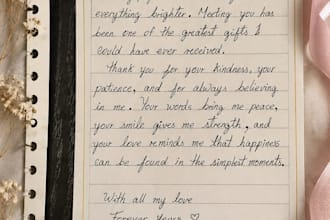 everything brighter. Meeting you has
been one of the greatest gifts I
could have ever received.
Thank you for your kindness, your
patience, and for always believing
in me. Your words bring me peace,
your smile gives me strength, and
your love reminds me that happiness
can be found in the simplest moments.
With all my love
Forever Yours ♡